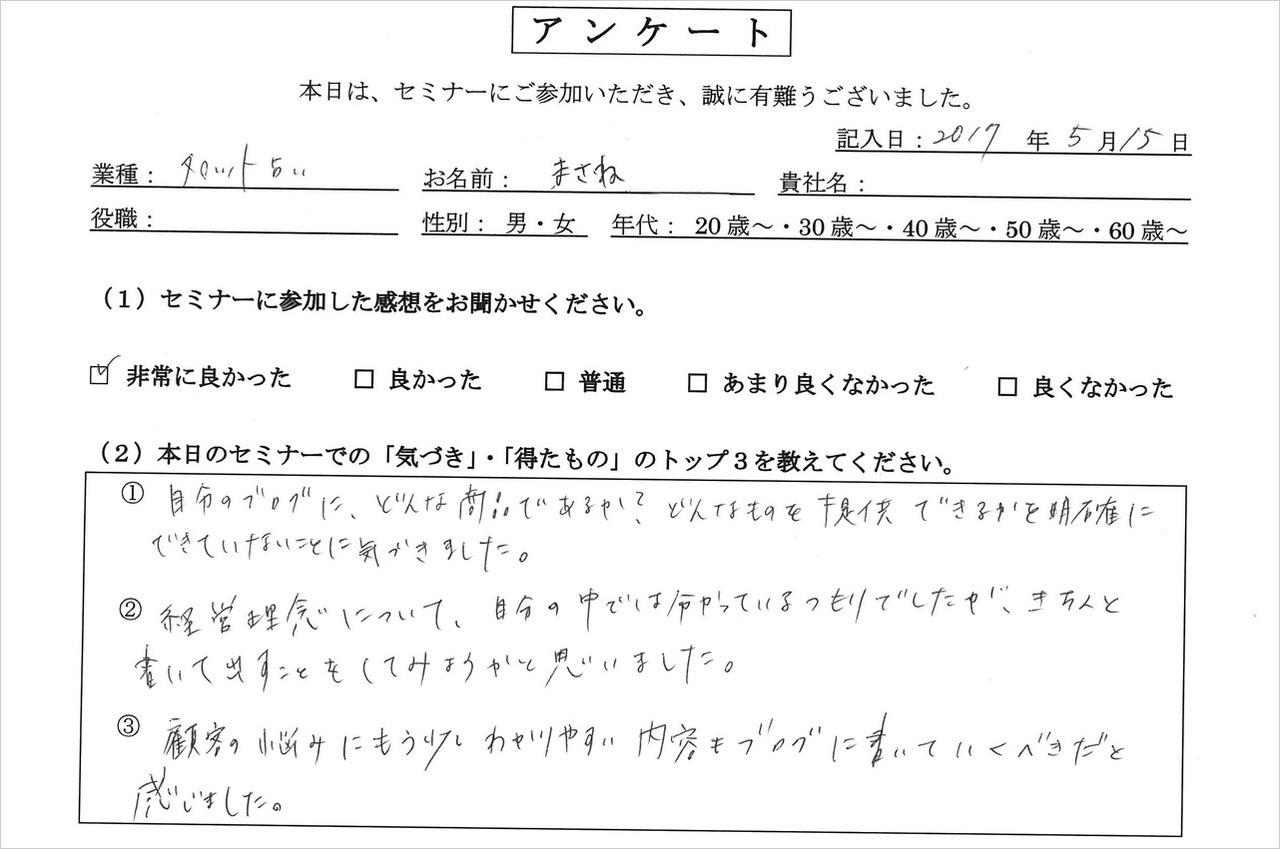 アンケート
本日は、セミナーにご参加いただき、誠に有難うございました。
記入日：2017 年 5 月 15 日
業種：タロット占い お名前：まさね 貴社名：
役職： 性別： 男・女 年代： 20歳～・30歳～・40歳～・50歳～・60歳～
（１）セミナーに参加した感想をお聞かせください。
☑ 非常に良かった □ 良かった □ 普通 □ あまり良くなかった □ 良くなかった
（２）本日のセミナーでの「気づき」・「得たもの」のトップ３を教えてください。
① 自分のブログに、どんな商品であるか？どんなものを提供できるかを明確に
できていないことに気がきました。
② 経営理念について、自分の中では分かっているつもりでしたが、きちんと
書いて出すことをしてみようかと思いました。
③ 顧客の悩みにもう少しわかりやすい内容をブログに書いていくべきだと
感じました。